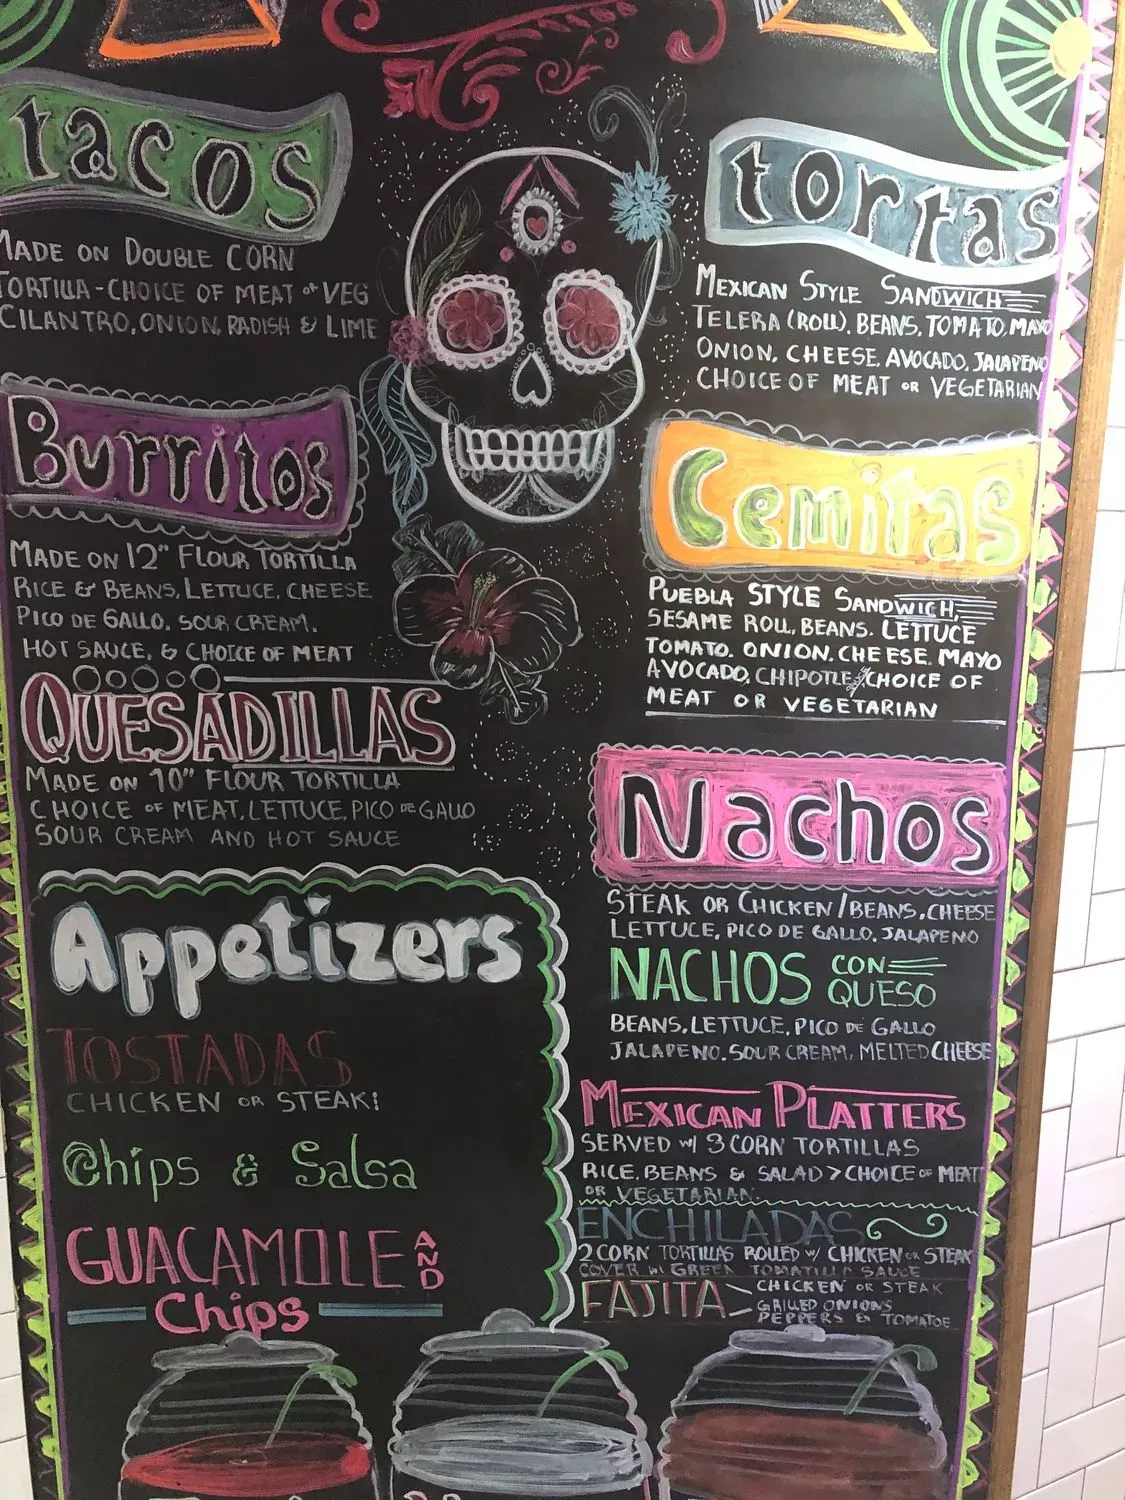 tacos
MADE ON DOUBLE CORN
TORTILLA - CHOICE OF MEAT or VEG
CILANTRO, ONION, RADISH & LIME
Burritos
MADE ON 12" FLOUR TORTILLA
RICE & BEANS, LETTUCE, CHEESE
PICO DE GALLO, SOUR CREAM,
HOT SAUCE, & CHOICE OF MEAT
QUESADILLAS
MADE ON 10" FLOUR TORTILLA
CHOICE OF MEAT, LETTUCE, PICO DE GALLO
SOUR CREAM AND HOT SAUCE
Appetizers
TOSTADAS
CHICKEN OR STEAK!
Chips & Salsa
GUACAMOLE AND
Chips
tortas
MEXICAN STYLE SANDWICH
TELERA (ROLL), BEANS, TOMATO, MAYO
ONION, CHEESE, AVOCADO, JALAPENO
CHOICE OF MEAT OR VEGETARIAN
Cemitas
PUEBLA STYLE SANDWICH,
SESAME ROLL, BEANS, LETTUCE
TOMATO, ONION, CHEESE, MAYO
AVOCADO, CHIPOTLE, CHOICE OF
MEAT OR VEGETARIAN
Nachos
STEAK OR CHICKEN / BEANS, CHEESE
LETTUCE, PICO DE GALLO, JALAPENO
NACHOS CON QUESO
BEANS, LETTUCE, PICO DE GALLO
JALAPENO, SOUR CREAM, MELTED CHEESE
MEXICAN PLATTERS
SERVED W/ 3 CORN TORTILLAS
RICE, BEANS & SALAD > CHOICE OF MEAT
OR VEGETARIAN.
ENCHILADAS
2 CORN TORTILLAS ROLLED W/ CHICKEN OR STEAK
COVER W/ GREEN TOMATILLO SAUCE
FAJITA
CHICKEN OR STEAK
GRILLED ONIONS
PEPPERS & TOMATOE